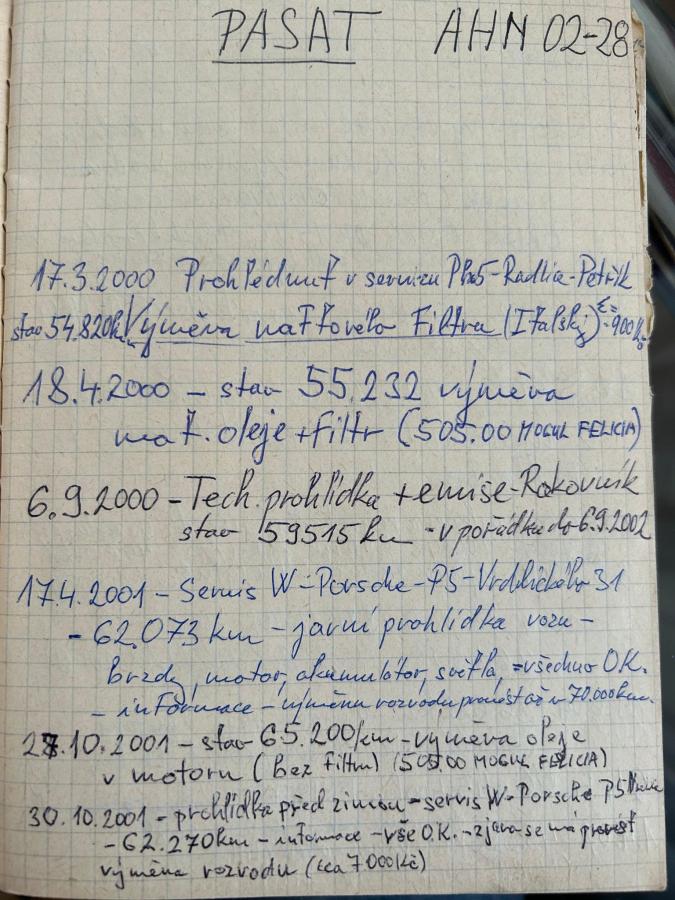 PASAT AHN 02-28
17.3.2000 Prohlédnut v servizu Pha5-Radlia-Petřík
stav 54.820km Výměna naftového Filtra (Italský) Σ=900Kč
18.4.2000 - stav 55.232 výměna
mot. oleje + filtr (505.00 MOGUL FELICIA)
6.9.2000 - Tech. prohlídka + emise - Rakovník
stav 59515 km - v pořádku do 6.9.2002
17.4.2001 - Servis W-Porsche - P5 - Vrchlického 31
- 62.073 km - jarní prohlídka vozu -
brzdy, motor, akumulátor, světla, = všechno OK.
- informace - výměnu rozvodu provést až v 70.000km.
27.10.2001 - stav 65.200 km - výměna oleje
v motoru (bez filtru) (505.00 MOGUL FELICIA)
30.10.2001 - prohlídka před zimou - servis W-Porsche P5
- 62.270km - informace - vše O.K. - z jara se má provést
výměna rozvodu (cca 7000Kč)